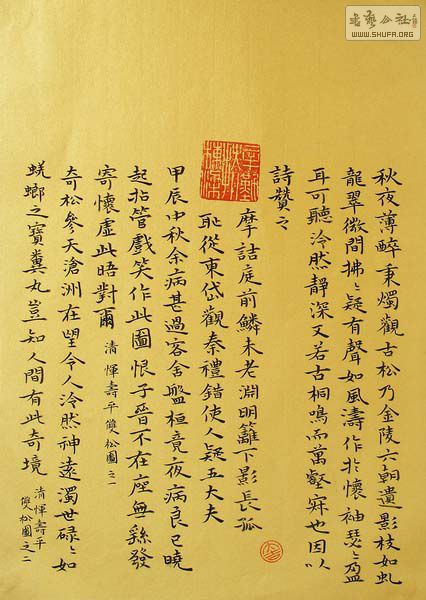 书艺公社
WWW.SHUFA.ORG
秋夜薄醉秉燭觀古松乃金陵六朝遺影枝如虬
龍翠微間拂〻疑有聲如風濤作於懷袖瑟〻盈
耳可聽泠然靜深又若古桐鳴而萬壑寂也因以
詩贊之
摩詰庭前鱗未老淵明籬下影長孤
恥從東岱觀秦禮錯使人疑五大夫
甲辰中秋余病甚過客舍盤桓竟夜病良已曉
起拈管戲笑作此圖恨子晉不在座無繇發
寄懷虛此晤對爾 清惲壽平雙松圖之一
奇松參天滄洲在望令人泠然神遠濁世碌〻如
蜣螂之寶糞丸豈知人間有此奇境 清惲壽平
雙松圖之二